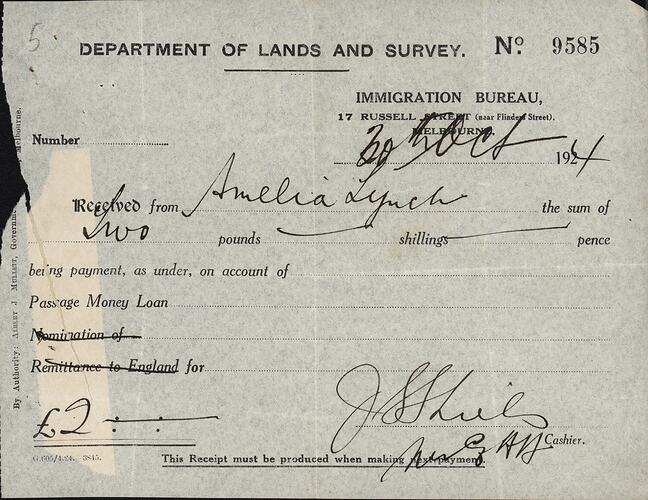 5
DEPARTMENT OF LANDS AND SURVEY. No. 9585
IMMIGRATION BUREAU,
17 RUSSELL STREET (near Flinders Street),
MELBOURNE,
Number
30th Oct 1924
Received from Amelia Lynch the sum of
Two pounds shillings pence
being payment, as under, on account of
Passage Money Loan
Nomination of
Remittance to England for
£2 : :
Cashier.
G.605/4.24. 3845.
This Receipt must be produced when making next payment.
By Authority: ALBERT J. MULLETT, Government Melbourne.